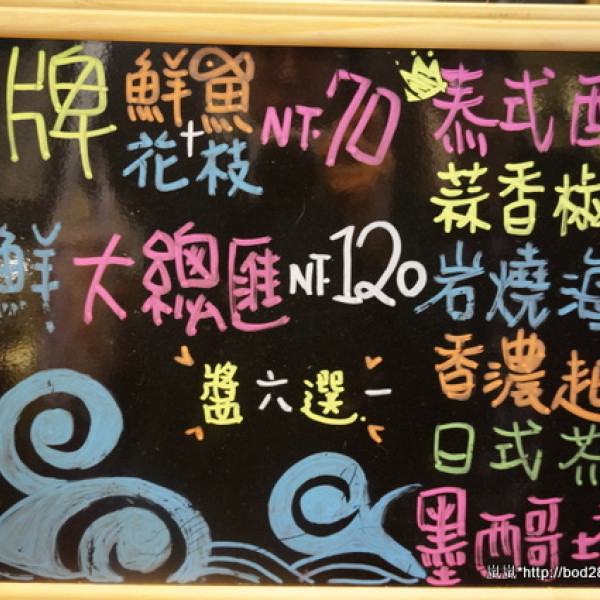 牌 鮮魚+花枝 NT.70
鮮 大總匯 NT.120
醬六選一
泰式
蒜香椒
岩燒海
香濃起
日式芥
墨西哥
嵐嵐*http://bod28